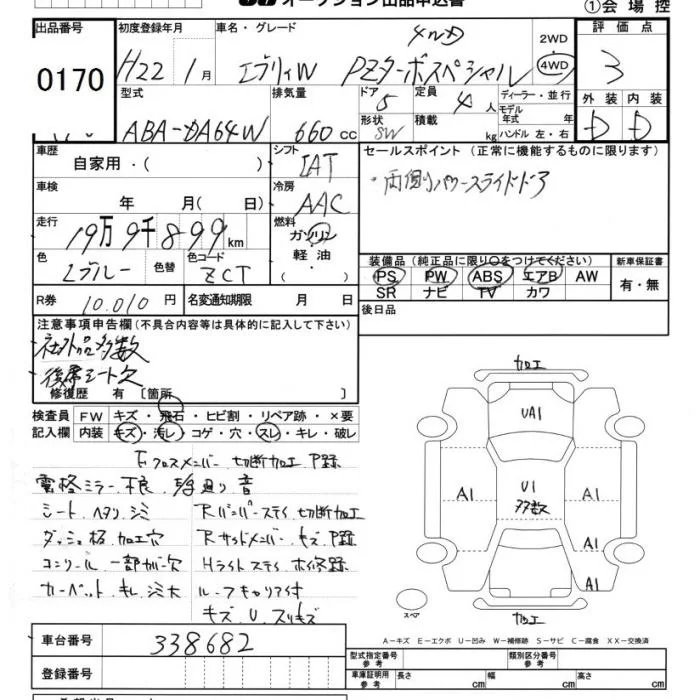 オークション出品申込書
①会場控
出品番号
0170
初度登録年月
H22 1月
車名・グレード
4WD
エブリィW PZターボスペシャル
2WD
4WD
評価点
3
外装 内装
D D
型式
ABA-DA64W
排気量
660 cc
ドア
5
形状
SW
定員
4人
積載
kg
ディーラー・並行
モデル年式 年
ハンドル 左・右
車歴
自家用・( )
シフト
IAT
セールスポイント(正常に機能するものに限ります)
・両側パワースライドドア
車検
年 月( 日)
冷房
AAC
走行
19万9千899km
燃料
ガソリン
軽油
・( )
色
Lブルー
色替
色コード
ZCT
装備品(純正品に限り○をつけてください)
新車保証書
PS PW ABS エアB AW
SR ナビ TV カワ
有・無
R券
10.010円
名変通知期限
月 日
後日品
注意事項申告欄(不具合内容等は具体的に記入して下さい)
社外品多数
後席シート欠
修復歴 有 〔箇所 〕
検査員記入欄
FW キズ・飛石・ヒビ割・リペア跡・×要
内装 キズ・汚レ・コゲ・穴・スレ・キレ・破レ
Fクロスメンバー 切断加工 P跡
電格ミラー不良
音
シート ヘタリ シミ
Rバンパーステイ 切断加工
加工穴
Rサイドメンバー キズ P跡
コンソール 一部カバー欠
Hライトステイ
カーペット キレ シミ大
ルーフキャリア付
キズ U スリキズ
加工
UA1
A1
U1
多数
A1
A1
A1
加工
スペア
A-キズ E-エクボ U-凹み W-補修跡 S-サビ C-腐食 XX-交換済
車台番号
338682
登録番号
型式指定番号
参考
類別区分番号
参考
車庫証明用
参考
長さ cm 幅 cm 高さ cm